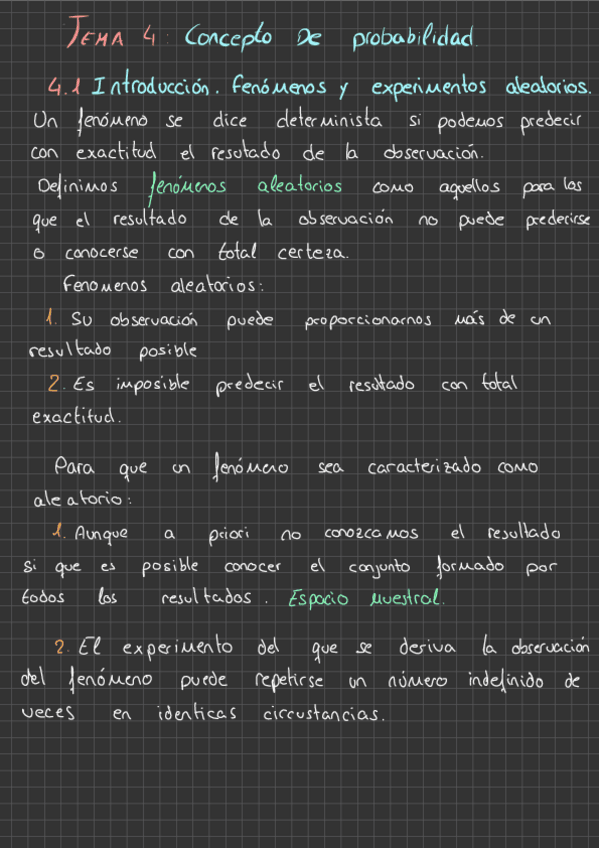 TEMA 4: Concepto De probabilidad.
4.1 Introducción. Fenómenos y experimentos aleatorios.
Un fenómeno se dice determinista si podemos predecir
con exactitud el resutado de la observación.
Definimos fenómenos aleatorios como aquellos para los
que el resultado de la observación no puede prederirse
o conocerse con total certeza.
Fenomenos aleatorios:
1. Su observación puede proporcionarnos más de un
resultado posible
2. Es imposible predecir el resultado con total
exactitud.
Para que un fenómeno sea caracterizado como
aleatorio:
1. Aunque a priori no conozcamos el resultado
si que es posible conocer el conjunto formado por
todos los resultados. Espacio muestral.
2. El experimento del que se deriva la observación
del fenómeno puede repetirse un número indefinido de
veces en identicas circustancias.